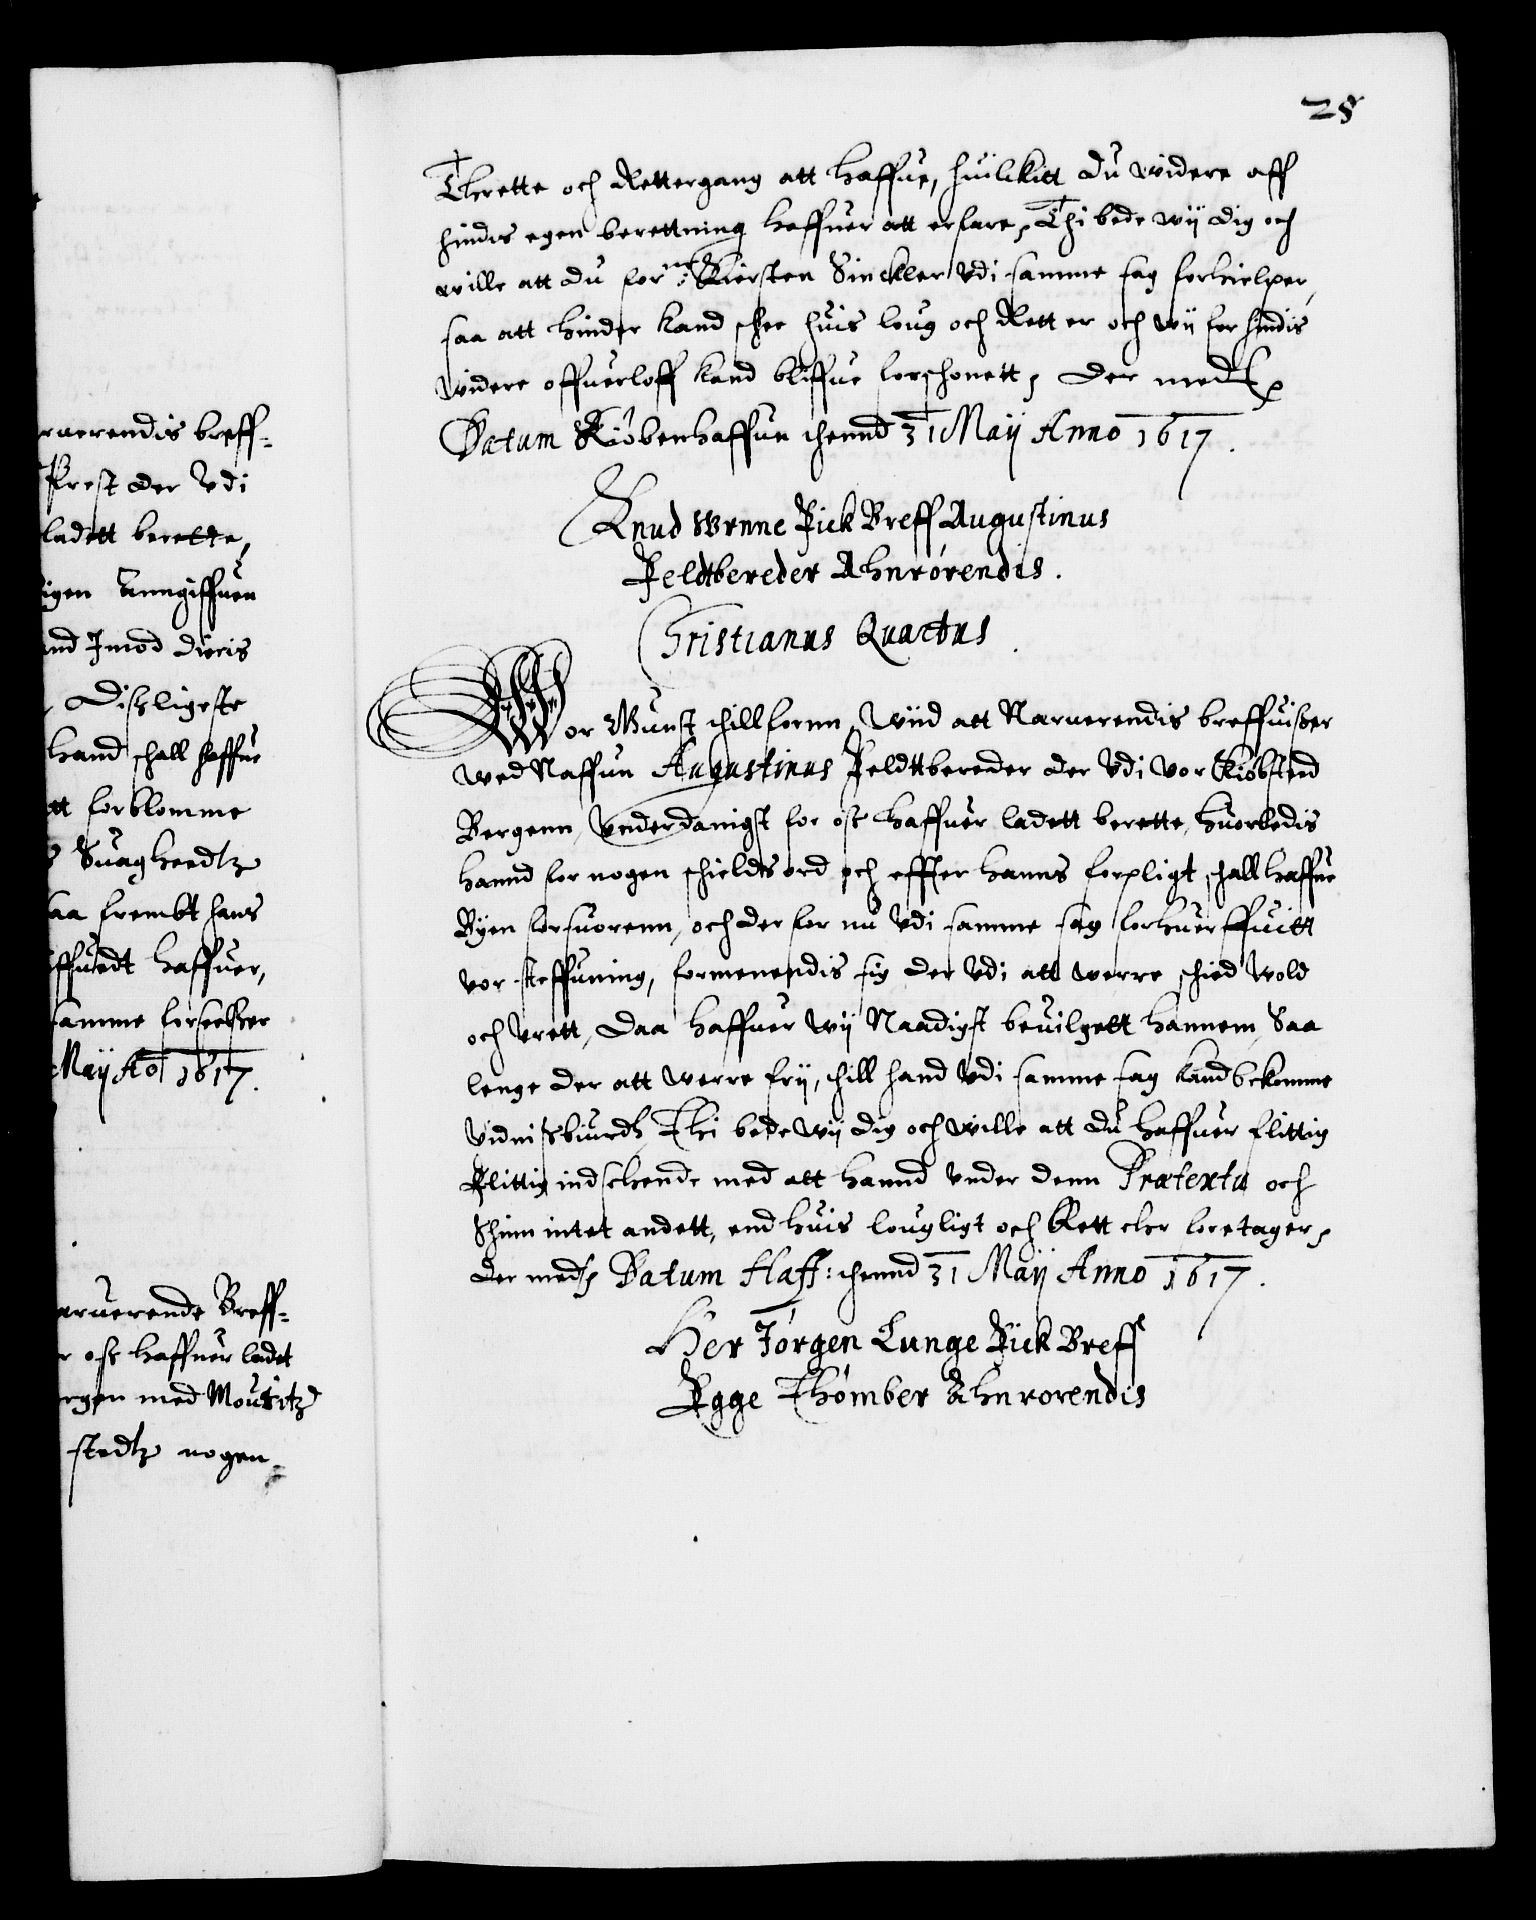 28
Thrette och Rettergang att haffue, huilkitt du widere aff
hindis egen berettning haffuer att erfare, Thi bede wij dig och
wille att du forne: Kiersten Sinckler vdi samme sag forhielper,
saa att hinder kand schee huis loug och Rett er och wij for hindis
widere offuerloff kand bliffue forschonett, der med
Datum Kiöbenhaffun thennd 31 Maij Anno 1617.
Knud Wrnne Fick Breff Augustinus
Feldtbereder Ahnrörendis.
Christianus Quartus
Wor Gunst thillfornn, Wiid att Naruerendis breffuiser
wed Naffun Augustinus Feldttbereder der vdi vor Kiöbsted
Bergenn, Vnderdanigst for oss haffuer ladett berette, huorledis
hannd for nogen schieldts ord och effter hanns forpligt, schall haffue
Byen forsuorenn, och der for nu vdi samme sag forhuerffuitt
vor steffuning, formenendis sig der vdi att werre schied wold
och vrett, Daa haffuer wij Naadigst beuilgett hannem, Saa
lenge der att werre frij, thill hand vdi samme sag kand bekomme
vidnissbiurdt, Thi bede wij dig och wille att du haffuer flittig
Flittig indseende med att hannd vnder denn Prætextu och
Schinn intet andett, end huis lougligt och Rett ehr foretager,
der med Datum Haff: thennd 31 Maij Anno 1617.
Her Jörgen Lunge Fick Breff
Agge Thömber Ahnrorendis
ruerendis breff-
Prest der vdi
ladett berette,
igen Anngiffuen
nd Imod dieris
hand schall haffue
tt forblomme
Suagheedtz
aa frembt hans
ffuedt haffuer,
samme forseelser
Maij Ao 1617.
aruerende Breff-
r oss haffuer ladet
rgen med Mouritz
stedtz nogen